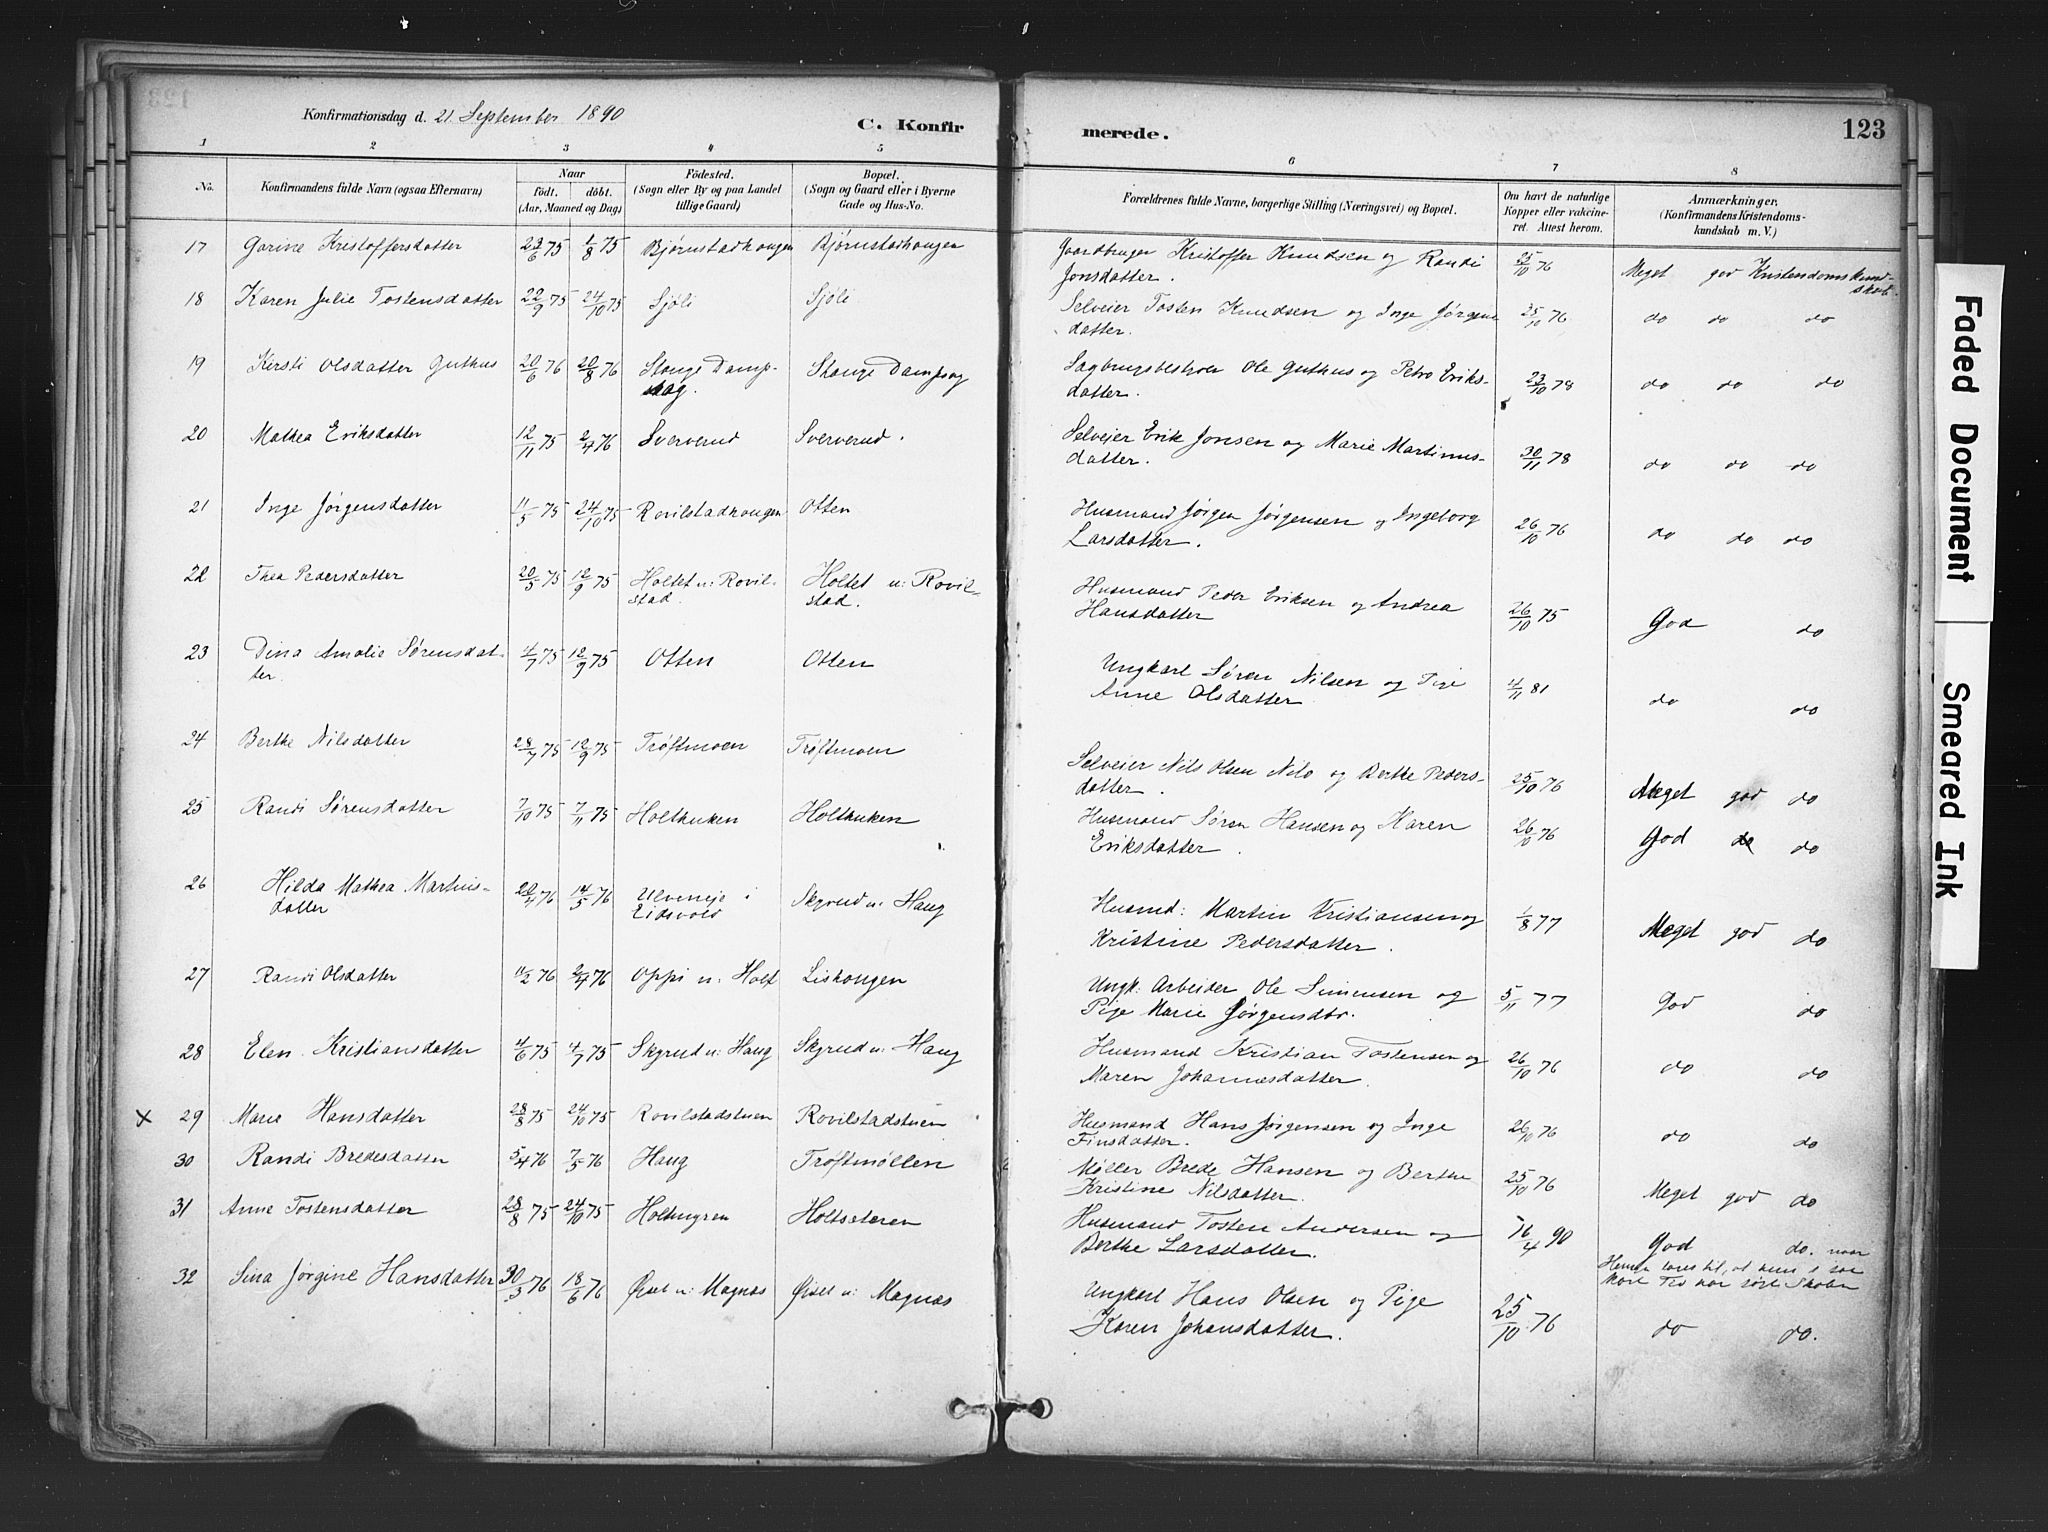 Konfirmationsdag d. 21. September 1890
C. Konfir merede. 123
1 2 3 4 5 6 7 8
No. Konfirmandens fulde Navn (ogsaa Efternavn) Naar födt. döbt. (Aar, Maaned og Dag) Födested. (Sogn eller By og paa Landet tillige Gaard) Bopæl. (Sogn og Gaard eller i Byerne Gade og Hus-No. Forældrenes fulde Navne, borgerlige Stilling (Næringsvei) og Bopæl. Om havt de naturlige Kopper eller vakcineret. Attest herom. Anmærkninger. (Konfirmandens Kristendomskundskab m. V.)
17 Gorine Kristoffersdatter 23/6 75 1/8 75 Bjørnstadhaugen Bjørnstadhaugen Gaardbruger Kristoffer Knudsen og Randi 25/10 76 Meget god Kristendomskund-
Jonsdatter. skab.
18 Karen Julie Tostensdatter 22/9 75 24/10 75 Sjøli Sjøli Selveier Tosten Knudsen og Inge Jørgens 25/10 76 do do do
datter.
19 Kirsti Olsdatter Guthus 20/6 76 20/8 76 Stange Damp- Stange Dampsag Sagbrugsbestyrer Ole Guthus og Petra Eriks- 23/10 78 do do do
sag. datter.
20 Mathea Eriksdatter 12/11 75 2/4 76 Sververud Sververud. Selveier Erik Jonsen og Marie Martinus- 30/11 78 do do do
datter.
21 Inge Jørgensdatter 11/5 75 24/10 75 Rovilstadhaugen Otten Husmand Jørgen Jørgensen og Ingeborg 26/10 76 do do do
Larsdatter.
22 Thea Pedersdatter 20/5 75 12/9 75 Holtet u: Rovil- Holtet u: Rovil- Husmand Peder Eriksen og Andrea 26/10 75 God do
stad. stad. Hansdatter
23 Dina Amalie Sørensdat- 4/7 75 12/9 75 Otten Otten Ungkarl Søren Nilsen og Pige 4/11 81 do do
ter. Anne Olsdatter
24 Berthe Nilsdatter 28/7 75 12/9 75 Trøftmoen Trøftmoen Selveier Nils Olsen Nilo og Berthe Peders- 25/10 76 Meget god do
datter.
25 Randi Sørensdatter 7/10 75 7/11 75 Holthuken Holthuken Husmand Søren Hansen og Karen 26/10 76 God do do
Eriksdatter.
26 Hilda Mathea Martins- 20/4 76 14/5 76 Ulveneje i Skyrud u: Haug Husmd: Martin Kristiansen og 1/8 77 Meget god do
datter Eidsvold Kristine Pedersdatter.
27 Randi Olsdatter 11/2 76 2/4 76 Oppi u: Holt Lishaugen Ungk: Arbeider Ole Simensen og 5/11 77 God do
Pige Marie Jørgensdtr.
28 Elen Kristiansdatter 4/6 75 4/7 75 Skyrud u: Haug Skyrud u: Haug Husmand Kristian Tostensen og 26/10 76 do do
Maren Johannesdatter.
x 29 Marie Hansdatter 28/8 75 24/10 75 Rovilstadstuen Rovilstadstuen Husmand Hans Jørgensen og Inge 26/10 76 do do
Finsdatter.
30 Randi Bredesdatter 5/4 76 7/5 76 Haug Trøftmøllen Møller Brede Hansen og Berthe 25/10 76 Meget god do
Kristine Nilsdatter.
31 Anne Tostensdatter 28/8 75 24/10 75 Holtmyren Holtsæteren Husmand Tosten Andersen og 16/4 90 God do.
Berthe Larsdatter.
32 Sina Jørgine Hansdatter 30/3 76 18/6 76 Øiset u: Magnæs Øiset u: Magnæs Ungkarl Hans Olsen og Pige 25/10 76 do do.
Karen Johansdatter.
Faded Document
Smeared Ink